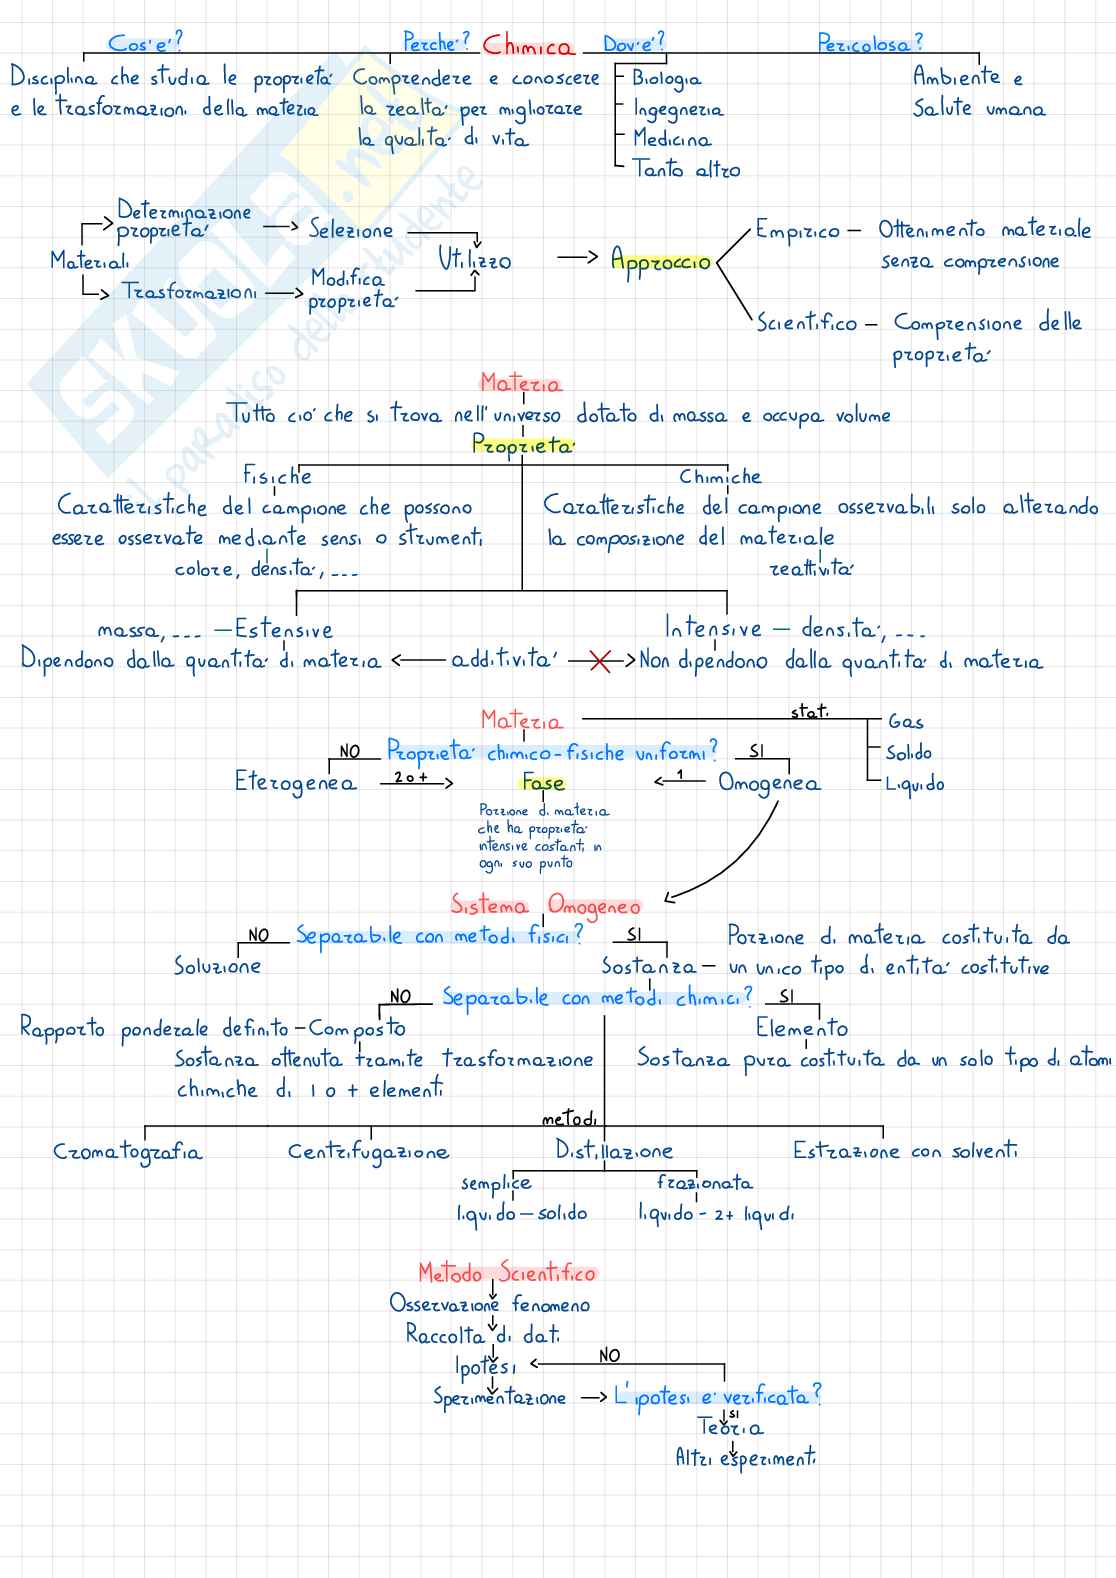 Cos'è? Perchè? Chimica Dov'è? Pericolosa?
Disciplina che studia le proprietà
e le trasformazioni della materia
Comprendere e conoscere
la realtà per migliorare
la qualità di vita
Biologia
Ingegneria
Medicina
Tanto altro
Ambiente e
Salute umana
Materiali
Determinazione
proprietà
Selezione
Trasformazioni
Modifica
proprietà
Utilizzo
Approccio
Empirico – Ottenimento materiale
senza comprensione
Scientifico – Comprensione delle
proprietà
Materia
Tutto ciò che si trova nell'universo dotato di massa e occupa volume
Proprietà
Fisiche
Caratteristiche del campione che possono
essere osservate mediante sensi o strumenti
colore, densità, ---
Chimiche
Caratteristiche del campione osservabili solo alterando
la composizione del materiale
reattività
massa, --- – Estensive
Intensive – densità, ---
Dipendono dalla quantità di materia ← additività → Non dipendono dalla quantità di materia
Materia
stati
Gas
Solido
Liquido
NO Proprietà chimico-fisiche uniformi? SI
Eterogenea 2 o + Fase 1 Omogenea
Porzione di materia
che ha proprietà
intensive costanti in
ogni suo punto
Sistema Omogeneo
NO Separabile con metodi fisici? SI
Soluzione
Sostanza – Porzione di materia costituita da
un unico tipo di entità costitutive
NO Separabile con metodi chimici? SI
Rapporto ponderale definito – Composto
Sostanza ottenuta tramite trasformazione
chimiche di 1 o + elementi
Elemento
Sostanza pura costituita da un solo tipo di atomi
metodi
Cromatografia
Centrifugazione
Distillazione
Estrazione con solventi
semplice
liquido – solido
frazionata
liquido - 2+ liquidi
Metodo Scientifico
Osservazione fenomeno
Raccolta di dati
Ipotesi
NO
Sperimentazione → L'ipotesi è verificata?
SI
Teoria
Altri esperimenti
SKUOLA.net
il paradiso dello studente